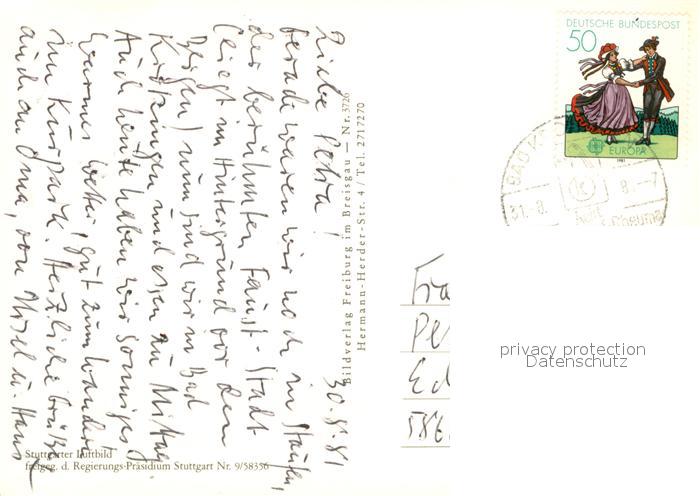 30.8.81
Liebe Petra!
Gerade waren wir noch in Staufen,
der berühmten Faust-Stadt
(liegt im Hintergrund vor den
Bergen) nun sind wir in Bad
Krozingen und essen zu Mittag.
Auch heute haben wir sonniges
warmes Wetter, gut zum Wandern
im Kurpark. Herzliche Grüße
auch an Oma, von Ursel u. Hans
Stuttgarter Luftbild
freigeg. d. Regierungs-Präsidium Stuttgart Nr. 9/58356
Bildverlag Freiburg im Breisgau — Nr. 3726
Hermann-Herder-Str. 4 / Tel. 2717270
DEUTSCHE BUNDESPOST
50
EUROPA
1981
BAD K
31.-8. 8.-7
Rheuma
Fra
Pe
Ed
586
privacy protection
Datenschutz